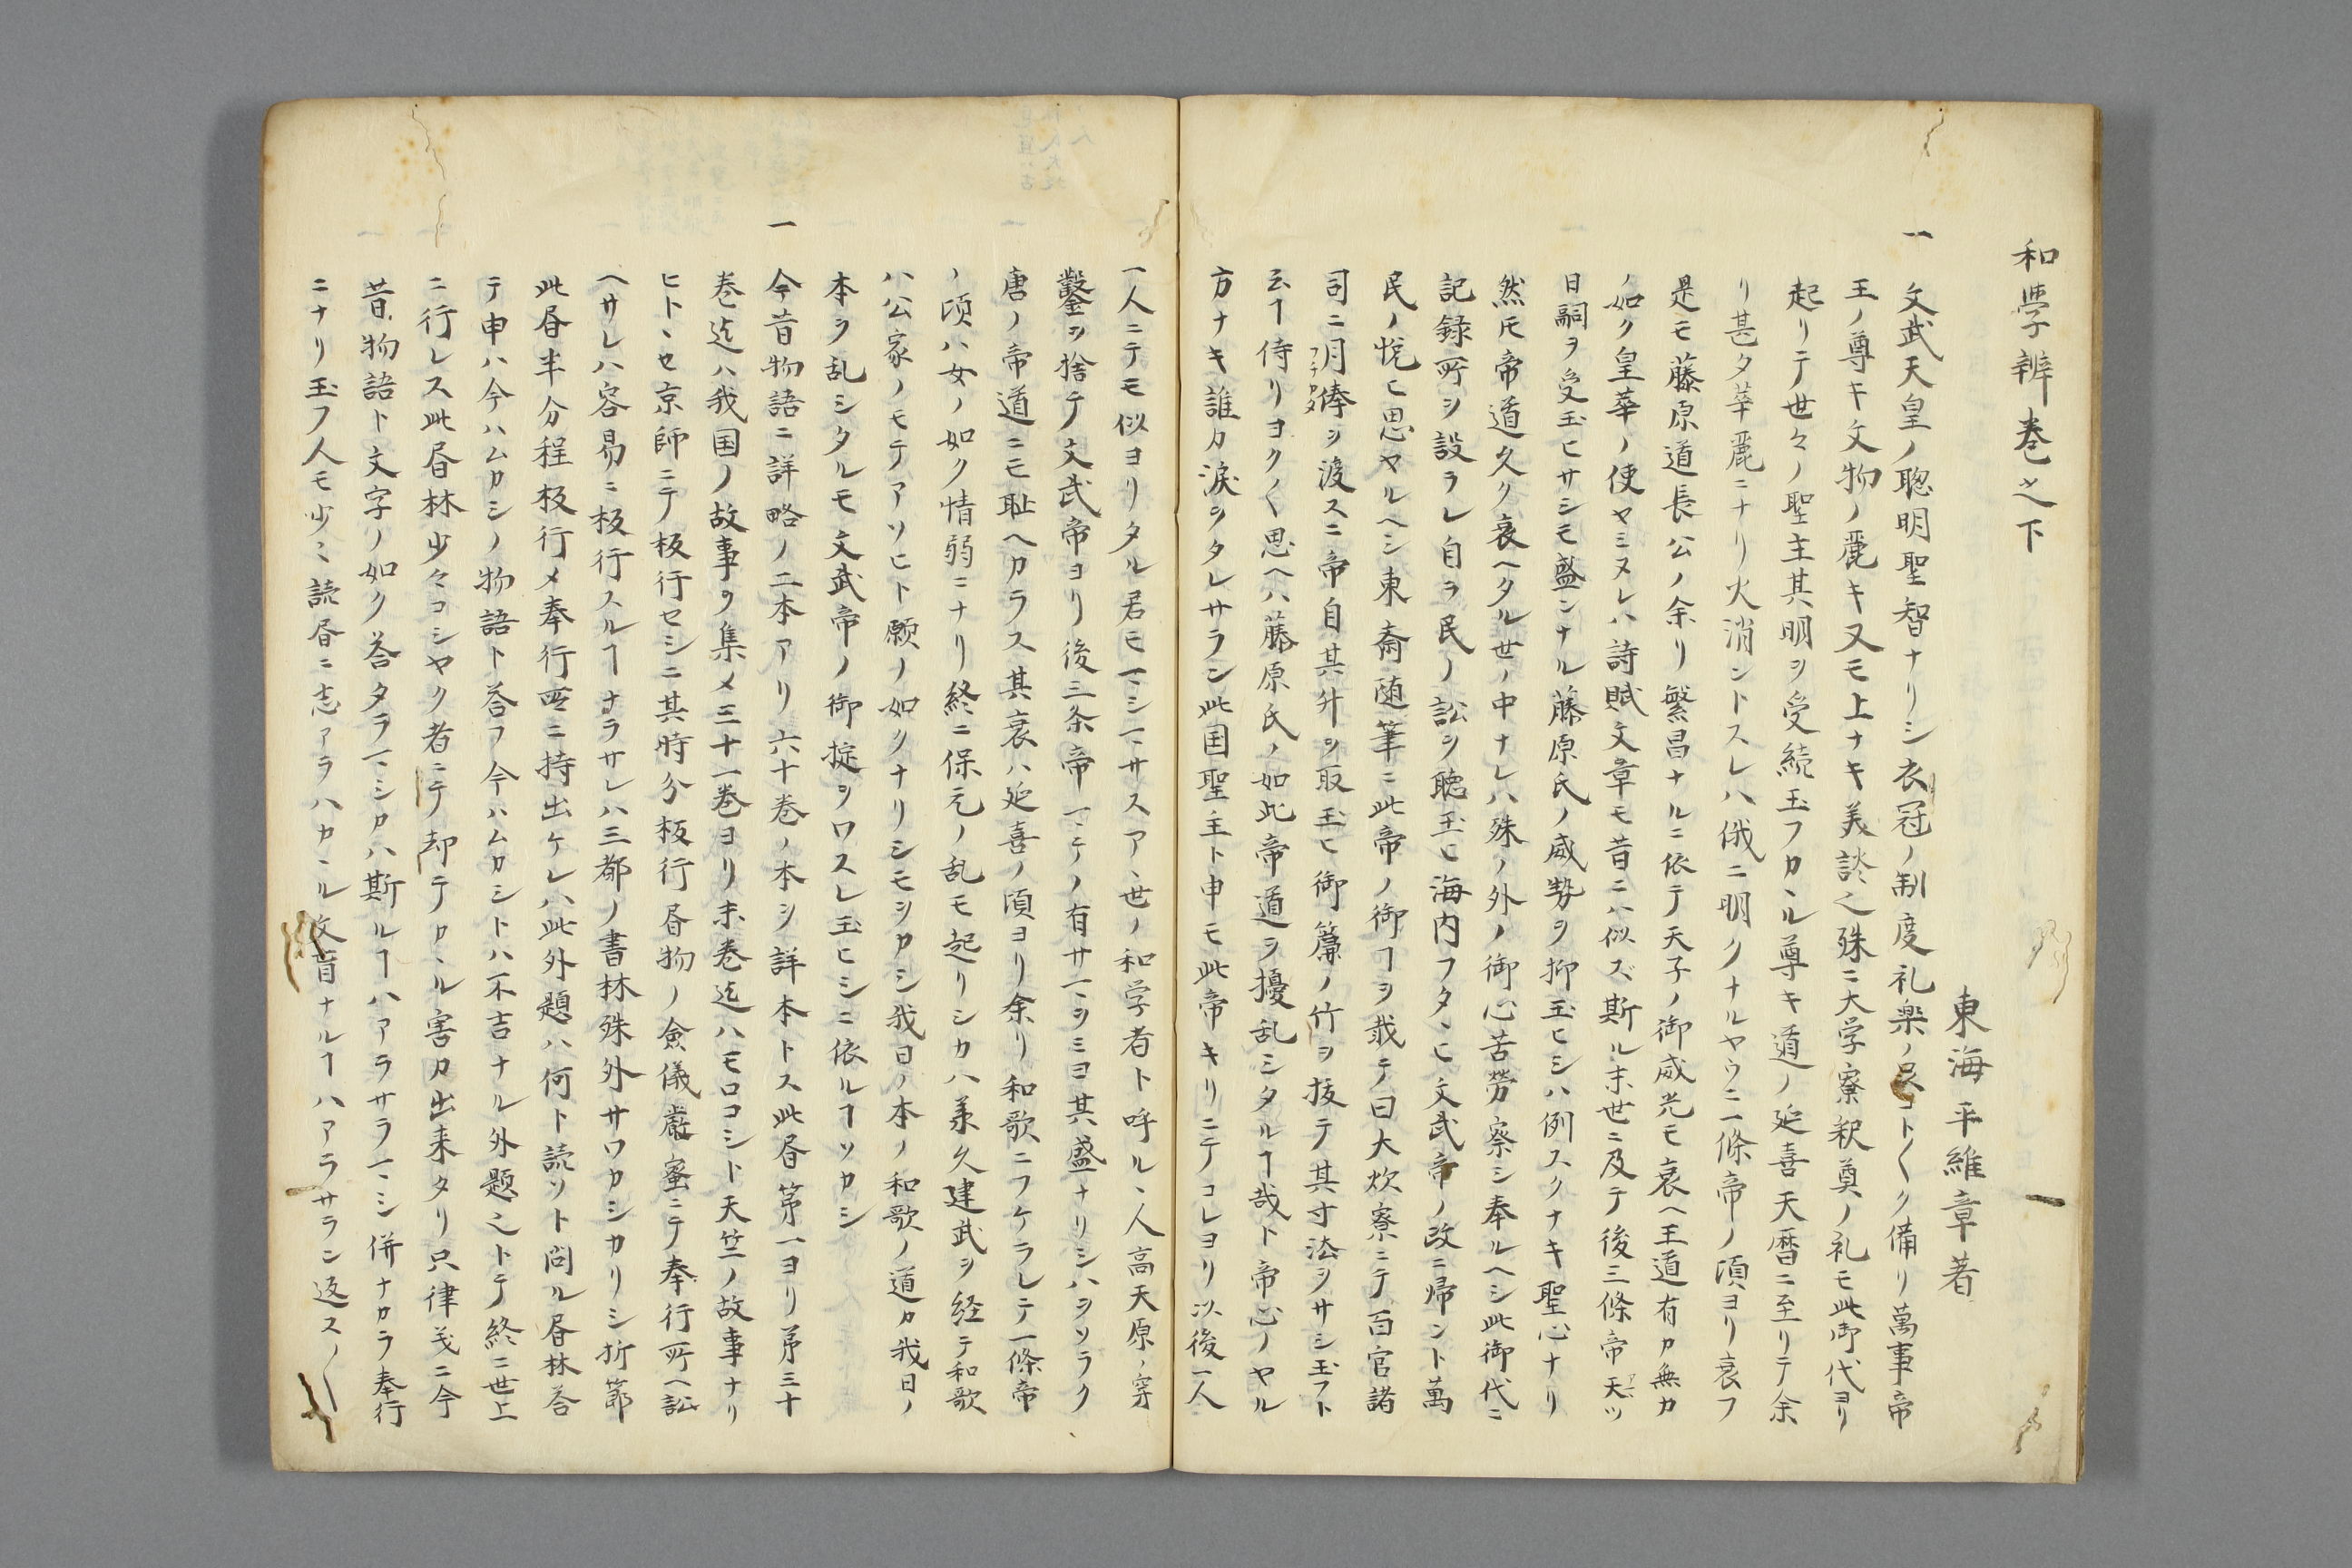 和学辨巻之下
東海平維章著
一 文武天皇ノ聡明聖智ナリシ衣冠ノ制度礼楽ノ具コト〱ク備リ萬事帝
王ノ尊キ文物ノ麗キ又モ上ナキ美談之殊ニ大学寮釈奠ノ礼モ此御代ヨリ
起リテ世々ノ聖主其明ヲ受続玉フカヽル尊キ道ノ延喜天暦ニ至リテ余
リ甚タ華麗ニナリ火消ントスレハ俄ニ明クナルヤウニ一條帝ノ頃ヨリ衰フ
是モ藤原道長公ノ余リ繁昌ナルニ依テ天子ノ御威光モ衰ヘ王道有カ無カ
ノ如ク皇華ノ使ヤミヌレハ詩賦文章モ昔ニハ似ズ斯ル末世ニ及テ後三條帝天ツ
日嗣ヲ受玉ヒサシモ盛ンナル藤原氏ノ威勢ヲ抑玉ヒシハ例スクナキ聖心ナリ
然㞮帝道久ク衰ヘタル世ノ中ナレハ殊ノ外ノ御心苦労察シ奉ルヘシ此御代ニ
記録所ヲ設ラレ自ラ民ノ訟ヲ聴玉ヒ海内フタヽヒ文武帝ノ政ニ帰ント萬
民ノ悦ヒ思ヤルヘシ東斎随筆ニ此帝ノ御ヿヲ載テ曰大炊寮ニテ百官諸
司ニ月俸ヲ渡スニ帝自其升ヲ取玉ヒ御簾ノ竹ヲ抜テ其寸法ヲサシ玉フト
云ヿ侍リヨク〱思ヘハ藤原氏ノ如此帝道ヲ擾乱シタルヿ哉ト帝心ノヤル
方ナキ誰カ涙ヲタレサラン此国聖主ト申モ此帝キリニテコレヨリ以後一人
一人ニテモ似ヨリタル君モマシマサスアヽ世ノ和学者ト呼ルヽ人高天原ノ穿
鑿ヲ捨テ文武帝ヨリ後三条帝マテノ有サマヲミヨ其盛ナリシハヲソラク
唐ノ帝道ニモ耻ヘカラス其衰ハ延喜ノ頃ヨリ余リ和歌ニフケラレテ一條帝
ノ頃ハ女ノ如ク情弱ニナリ終ニ保元ノ乱モ起リシカハ承久建武ヲ経テ和歌
ハ公家ノモテアソヒト願ノ如クナリシモヲカシ我日ノ本ノ和歌ノ道カ我日ノ
本ヲ乱シタルモ文武帝ノ御掟ヲワスレ玉ヒシニ依ルヿソカシ
一 今昔物語ニ詳略ノ二本アリ六十巻ノ本ヲ詳本トス此昏第一ヨリ第三十
巻迄ハ我国ノ故事ヲ集メ三十一巻ヨリ末巻迄ハモロコシト天竺ノ故事ナリ
ヒトヽセ京師ニテ板行セシニ其時分板行昏物ノ僉儀厳蜜ニテ奉行所ヘ訟
ヘサレハ容易ニ板行スルヿナラサレハ三都ノ書林殊外サワカシカリシ折節
此昏半分程板行メ奉行所ニ持出ケレハ此外題ハ何ト読ソト問ル昏林答
テ申ハ今ハムカシノ物語ト答フ今ハムカシトハ不吉ナル外題之トテ終ニ世上
ニ行レス此昏林少々コシヤク者ニテ却テカヽル害カ出来タリ只律義ニ今
昔物語ト文字ノ如ク答タラマシカハ斯ルヿハアラサラマシ併ナカラ奉行
ニナリ玉フ人モ少ミ読昏ニ志アラハカヽル文盲ナルヿハアラサラン返ス〱